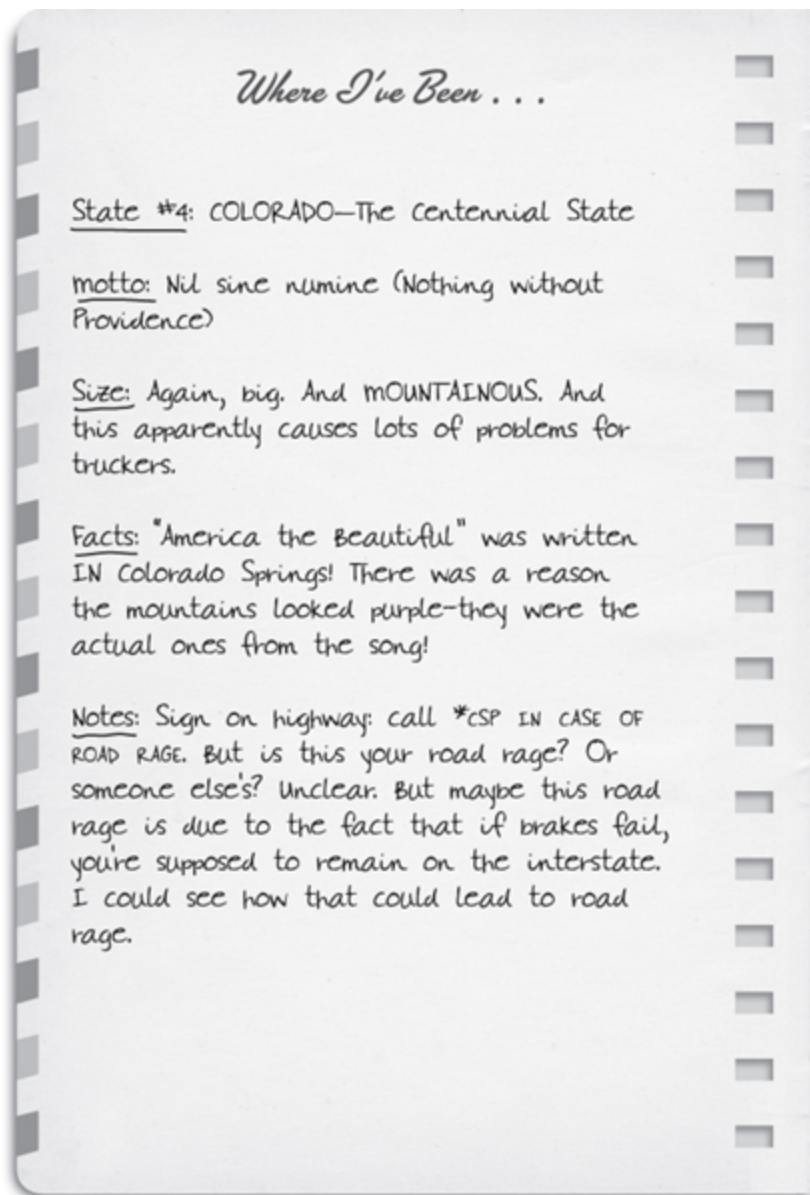 Where I've Been . . .
State #4: COLORADO—The Centennial State
motto: Nil sine numine (Nothing without
Providence)
Size: Again, big. And MOUNTAINOUS. And
this apparently causes lots of problems for
truckers.
Facts: "America the Beautiful" was written
IN Colorado Springs! There was a reason
the mountains looked purple-they were the
actual ones from the song!
Notes: Sign on highway: call *CSP IN CASE OF
ROAD RAGE. But is this your road rage? Or
someone else's? Unclear. But maybe this road
rage is due to the fact that if brakes fail,
you're supposed to remain on the interstate.
I could see how that could lead to road
rage.